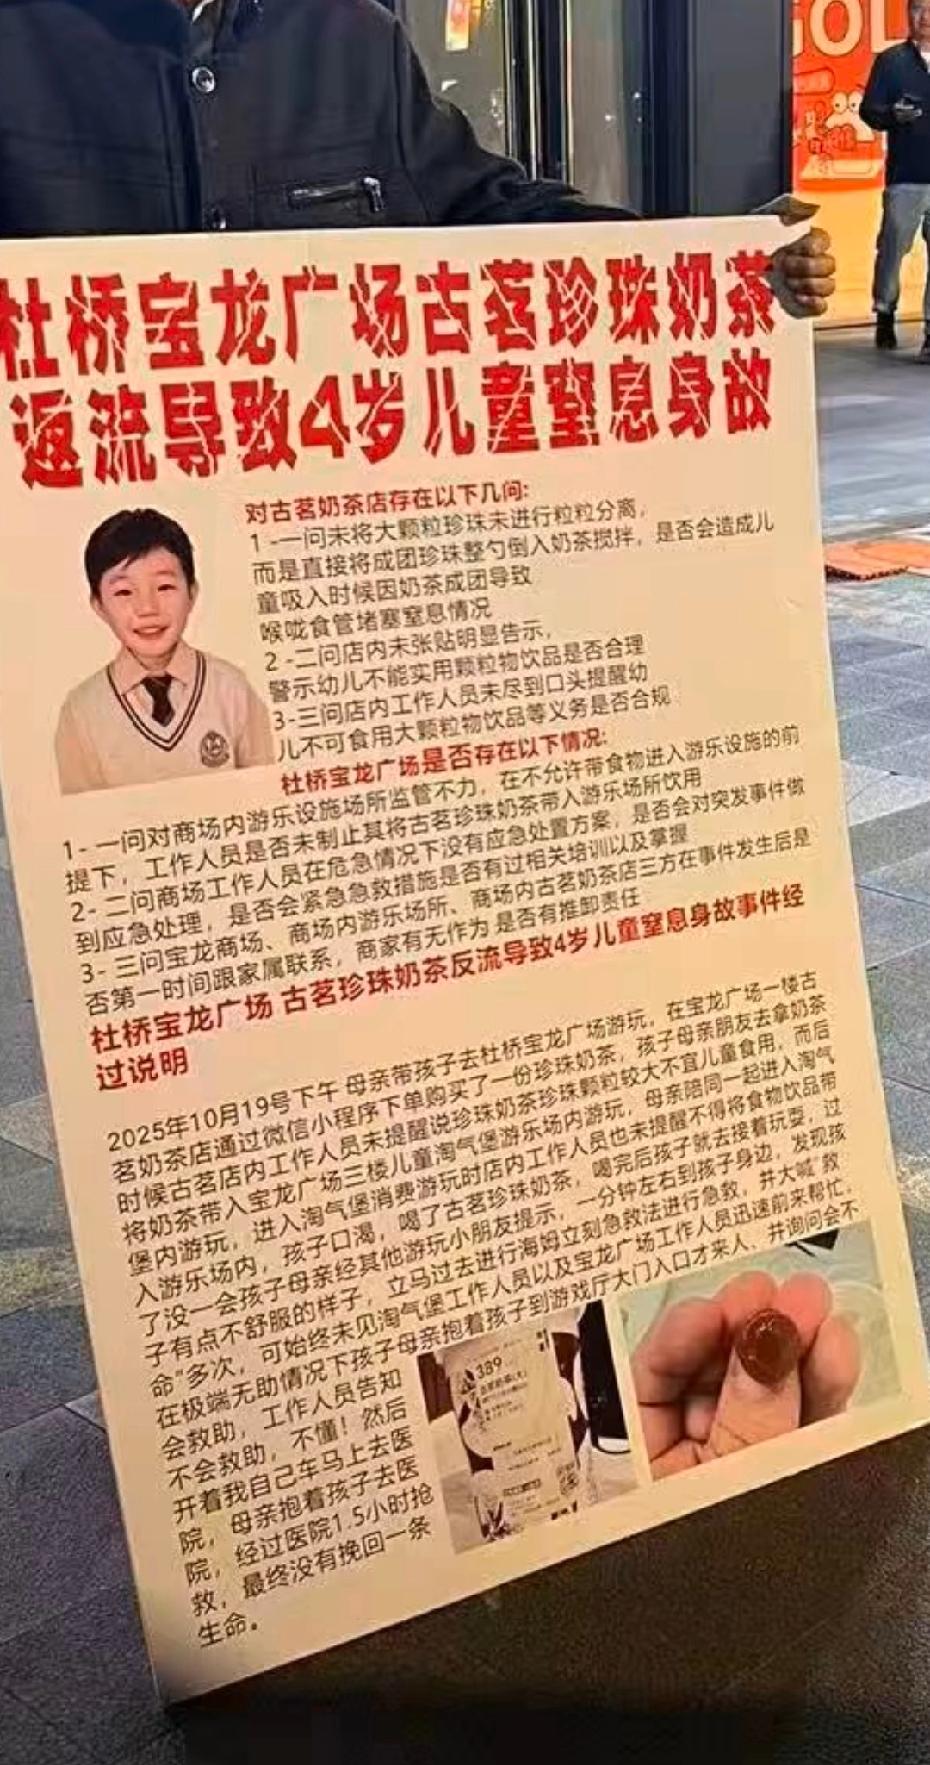 GOL
杜桥宝龙广场古茗珍珠奶茶
返流导致4岁儿童窒息身故
对古茗奶茶店存在以下几问:
1 -一问未将大颗粒珍珠未进行粒粒分离,
而是直接将成团珍珠整勺倒入奶茶搅拌，是否会造成儿
童吸入时候因奶茶成团导致
喉咙食管堵塞窒息情况
2 -二问店内未张贴明显告示,
警示幼儿不能实用颗粒物饮品是否合理
3-三问店内工作人员未尽到口头提醒幼
儿不可食用大颗粒物饮品等义务是否合规
杜桥宝龙广场是否存在以下情况:
1- 一问对商场内游乐设施场所监管不力，在不允许带食物进入游乐设施的前
提下，工作人员是否未制止其将古茗珍珠奶茶带入游乐场所饮用
2- 二问商场工作人员在危急情况下没有应急处置方案，是否会对突发事件做
到应急处理，是否会紧急急救措施是否有过相关培训以及掌握
3- 三问宝龙商场、商场内游乐场所、商场内古茗奶茶店三方在事件发生后是
否第一时间跟家属联系，商家有无作为 是否有推卸责任
杜桥宝龙广场 古茗珍珠奶茶反流导致4岁儿童窒息身故事件经
过说明
2025年10月19号下午 母亲带孩子去杜桥宝龙广场游玩，在宝龙广场一楼古
茗奶茶店通过微信小程序下单购买了一份珍珠奶茶，孩子母亲朋友去拿奶茶
时候古茗店内工作人员未提醒说珍珠奶茶珍珠颗粒较大不宜儿童食用，而后
将奶茶带入宝龙广场三楼儿童淘气堡游乐场内游玩，母亲陪同一起进入淘气
堡内游玩，进入淘气堡消费游玩时店内工作人员也未提醒不得将食物饮品带
入游乐场内，孩子口渴，喝了古茗珍珠奶茶，喝完后孩子就去接着玩耍，过
了没一会孩子母亲经其他游玩小朋友提示，一分钟左右到孩子身边，发现孩
子有点不舒服的样子，立马过去进行海姆立刻急救法进行急救，并大喊"救
命"多次，可始终未见淘气堡工作人员以及宝龙广场工作人员迅速前来帮忙，
在极端无助情况下孩子母亲抱着孩子到游戏厅大门入口才来人、并询问会不
会救助，工作人员告知
不会救助，不懂！然后
开着我自己车马上去医
院，母亲抱着孩子去医
院，经过医院1.5小时抢
救，最终没有挽回一条
生命。
389